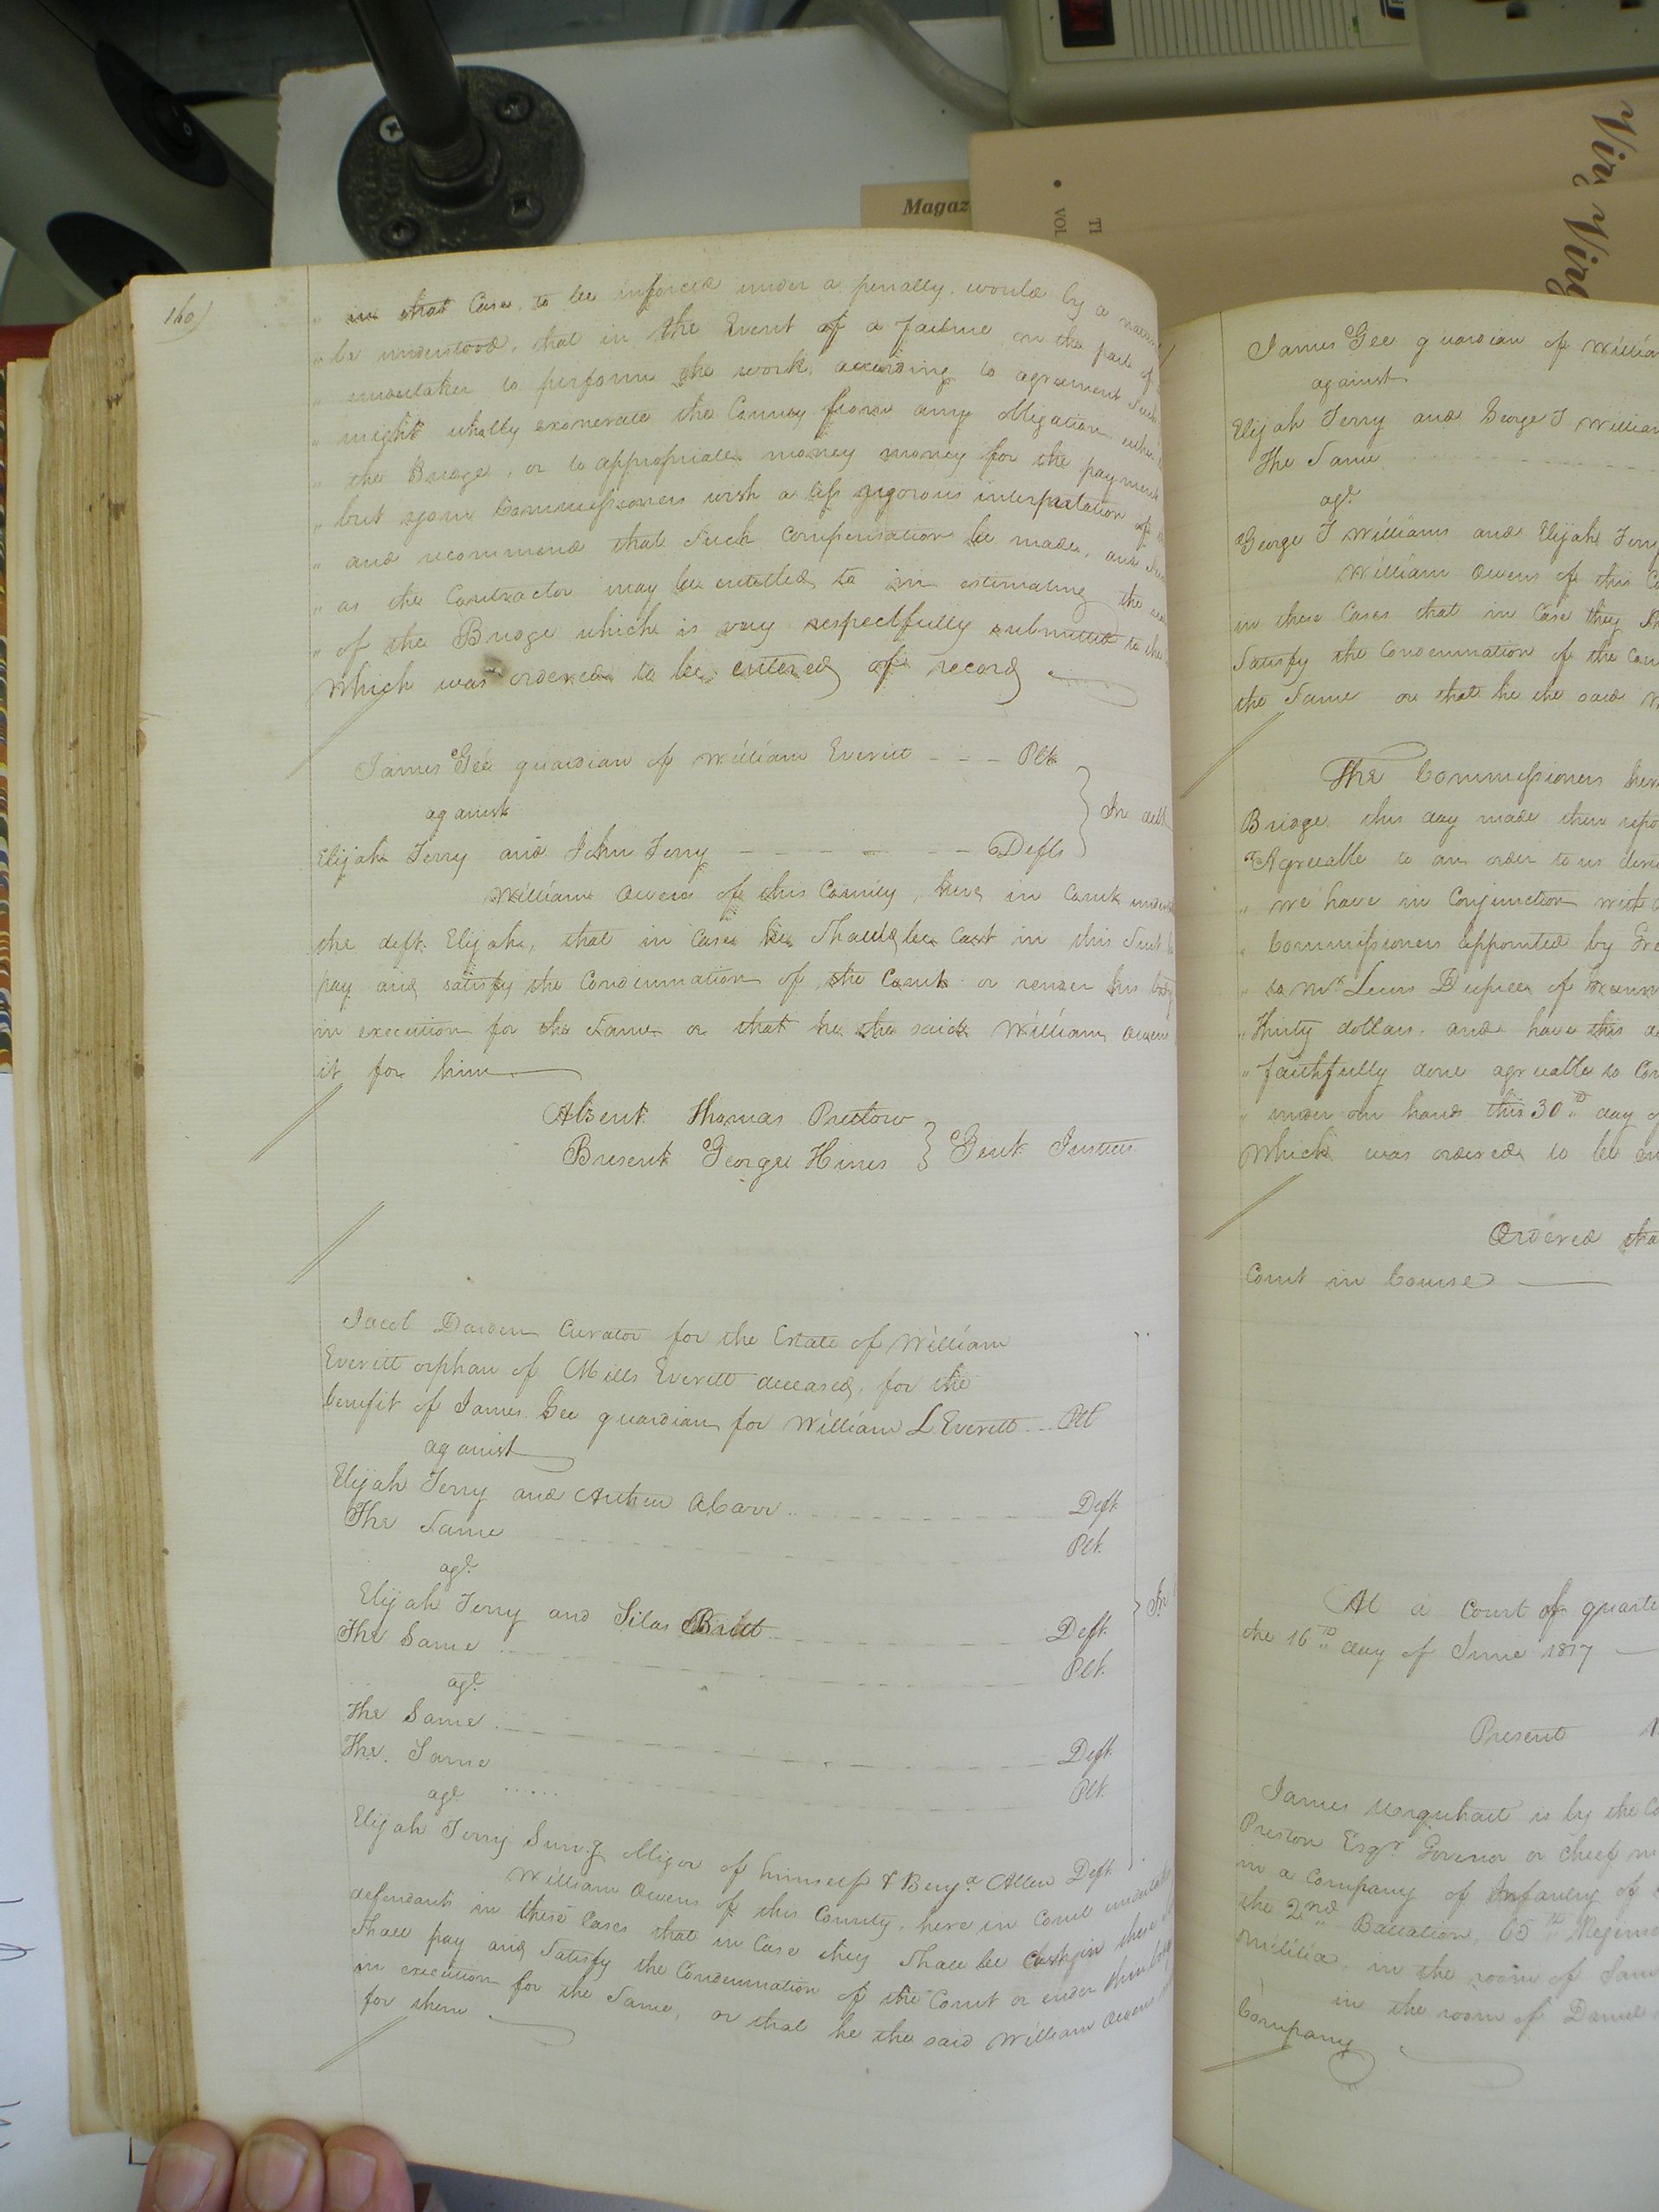 Magaz
TI
VOL
Vir
Virg
160)
" in that Case, to be inforced under a penalty. would by a
" be understood, that in the Event of a failure on the part of
" undertaker to perform the work, according to agreement
" might wholly exonerate the County from any Obligation
" the Bridge, or to appropriate money money for the payment
" but your Commissioners wish a less rigorous interpretation of
" and recommend that Such Compensation be made, and
" as the Contractor may be entitled to in estimating the
" of the Bridge which is very respectfully submitted to the
Which was ordered to be entered of record
James Gee guardian of William Everitt - - - Plt
against
Elijah Terry and John Terry - - - - - Defts
In debt
William Owens of this County, here in Court
the deft. Elijah, that in Case he Should be Cast in this Suit
pay and satisfy the Condemnation of the Court or render his body
in execution for the Same or that he the said William Owens
it for him
Absent Thomas Pretlow
Present George Hines } Gent Justices
Jacob Darden Curator for the Estate of William
Everitt orphan of Mills Everitt deceased, for the
benefit of James Gee guardian for William L Everitt ... Plt
against
Elijah Terry and Arthur A Carr Deft
The Same Plt.
agt.
Elijah Terry and Silas Britt Deft.
The Same Plt.
agt.
The Same Deft.
The Same Plt.
agt
In
Elijah Terry Survg Obligor of himself & Benja. Allen Deft
William Owens of this County, here in Court
defendants in these Cases that in Case they Shall be Cast in
Shall pay and Satisfy the Condemnation of the Court or
in execution for the Same, or that he the said William Owens
for them
James Gee guardian of William
against
Elijah Terry and George T William
The Same
agt.
George T Williams and Elijah Terry
William Owens of this
in these Cases that in Case they
Satisfy the Condemnation of the
the Same or that he the said
The Commissioners
Bridge this day made their
"Agreeable to an order to us
" we have in Conjunction with
" Commissioners appointed by
" to Mr. Lewis Dupree of
" Thirty dollars. and have this
" faithfully done agreeable to
" under our hands this 30th day
Which was ordered to be
Ordered
Court in Course
At a Court of
the 16th day of June 1817
Present
James Urquhart is by the
Preston Esqr. Govenor or cheef
in a Company of Infantry of
the 2nd Battalion, 65th
militia, in the room of
in the room of Daniel
Company